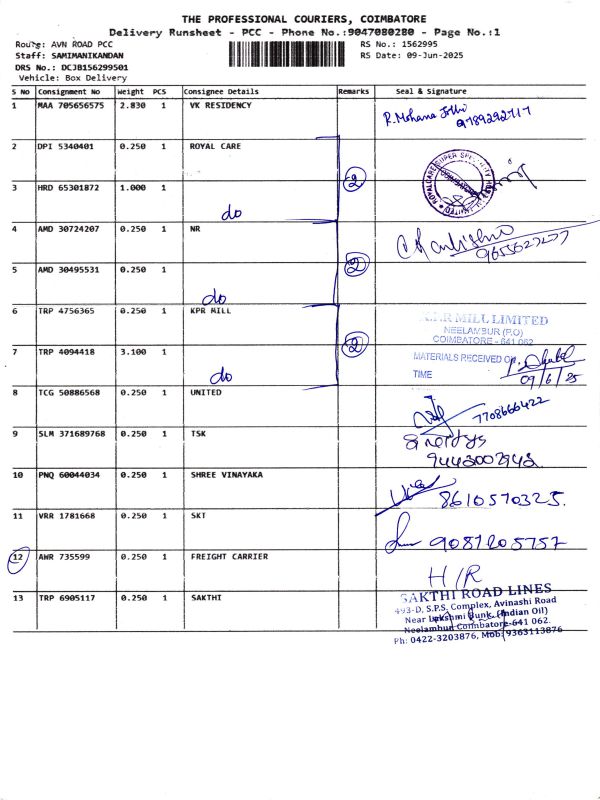 THE PROFESSIONAL COURIERS, COIMBATORE
Delivery Runsheet - PCC - Phone No.:9047080280 - Page No.:1
Route: AVN ROAD PCC
RS No.: 1562995
Staff: SAMIMANIKANDAN
RS Date: 09-Jun-2025
DRS No.: DCJB156299501
Vehicle: Box Delivery
S No Consignment No Weight PCS Consignee Details Remarks Seal & Signature
1 MAA 705656575 2.830 1 VK RESIDENCY
R. Mohana Jothi
9789292717
2 DPI 5340401 0.250 1 ROYAL CARE
3 HRD 65301872 1.000 1 do 2
4 AMD 30724207 0.250 1 NR
9655627277
5 AMD 30495531 0.250 1 do 2
6 TRP 4756365 0.250 1 KPR MILL
K.P.R MILL LIMITED
NEELAMBUR (P.O)
COIMBATORE - 641 062
7 TRP 4094418 3.100 1 do 2
MATERIALS RECEIVED ON
TIME 09/6/25
8 TCG 50886568 0.250 1 UNITED
7708666422
9 SLM 371689768 0.250 1 TSK
9443002942
10 PNQ 60044034 0.250 1 SHREE VINAYAKA
8610570325.
11 VRR 1781668 0.250 1 SKT
9087205757
12 AWR 735599 0.250 1 FREIGHT CARRIER
H/R
13 TRP 6905117 0.250 1 SAKTHI
SAKTHI ROAD LINES
493-D, S.P.S. Complex, Avinashi Road
Near Lakshmi Bunk, (Indian Oil)
Neelambur Coimbatore-641 062.
Ph: 0422-3203876, Mob: 9363113876